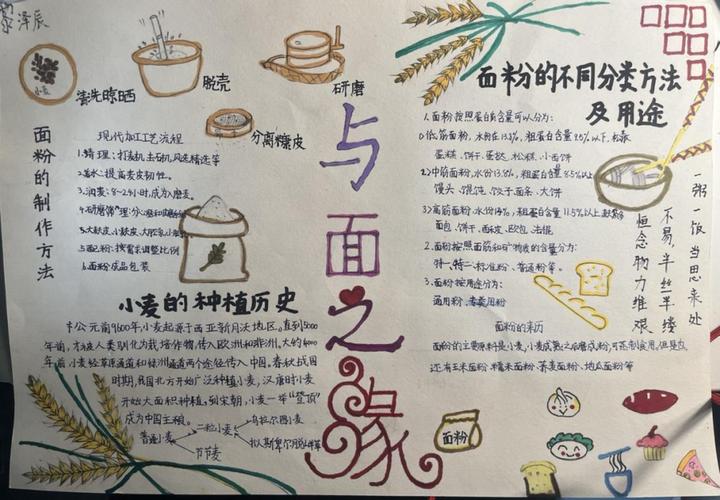 泽辰
小麦
清洗晾晒
脱壳
研磨
分离糠皮
面粉的制作方法
现代加工工艺流程
1.精理:打麦机、去石机、风选精选等
2.着水:提高麦皮韧性。
3.润麦:8~24小时,成为磨麦。
5.配粉:按需求调整比例
6.面粉成品包装
小麦的种植历史
公元前9600年,小麦起源于西亚新月沃地区。直到5000
年前,才被人类驯化为栽培作物,传入欧洲和非洲。大约4000
年前,小麦经草原通道和绿洲通道两个途径传入中国。春秋战国
时期,我国北方开始广泛种植小麦,汉唐时小麦
开始大面积种植,到宋朝,小麦一举“登顶”
成为中国主粮。
普通小麦
二粒小麦
节节麦
乌拉尔图小麦
与面之缘
面粉的不同分类方法
及用途
1.面粉按照蛋白质含量可以分为:
①低筋面粉,水份在13.8%,粗蛋白含量9.5%以下,松散
蛋糕、饼干、蛋挞、松糕、小西饼
2>中筋面粉,水份13.8%,粗蛋白含量8.5%以上
馒头、馄饨、饺子、面条、大饼
3>高筋面粉,水份14%,粗蛋白含量11.5%以上
面包、饼干、西皮、欧包、法棍
2.面粉按照面筋和矿物质的含量分为:
特一、特二、标准粉、普通粉等。
3.面粉按用途分为:
通用粉、专用粉
面粉的来历
面粉的主要原料是小麦,小麦成熟之后磨成粉,可蒸制食用。但是也
还有玉米面粉、糯米面粉、荞麦面粉、地瓜面粉等
一粥一饭当思来处
不易,半丝半缕
恒念物力维艰
面粉